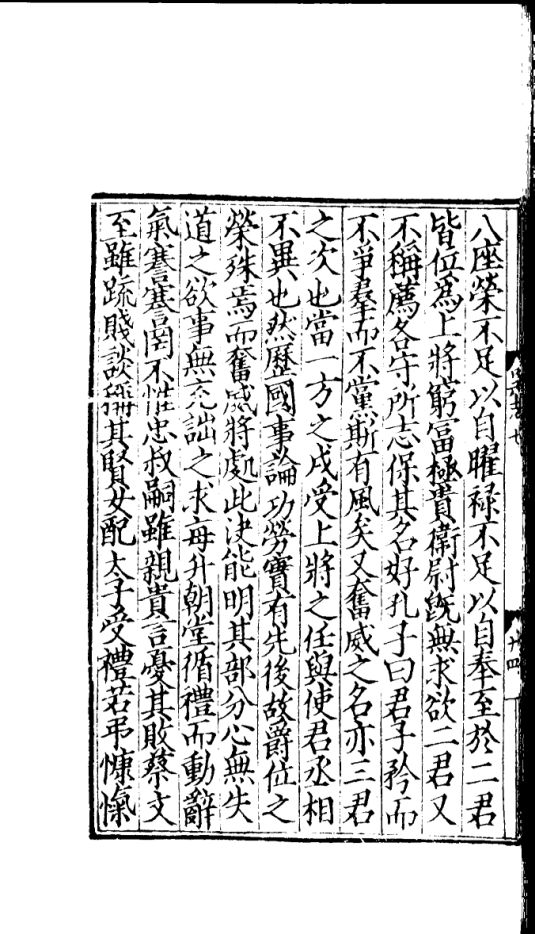 八座榮不足以自曜祿不足以自奉至於二君
皆位為上將窮富極貴衛尉旣無求欲二君又
不稱薦各守所志保其名好孔子曰君子矜而
不爭羣而不黨斯有風矣又奮威之名亦三君
之次也當一方之戍受上將之任與使君丞相
不異也然歷國事論功勞實有先後故爵位之
榮殊焉而奮威將處此决能明其部分心無失
道之欲事無充詘之求每升朝堂循禮而動辭
氣謇謇罔不惟忠叔嗣雖親貴言憂其敗蔡文
至雖疏賤談稱其賢女配太子受禮若弔慷愾
卄四